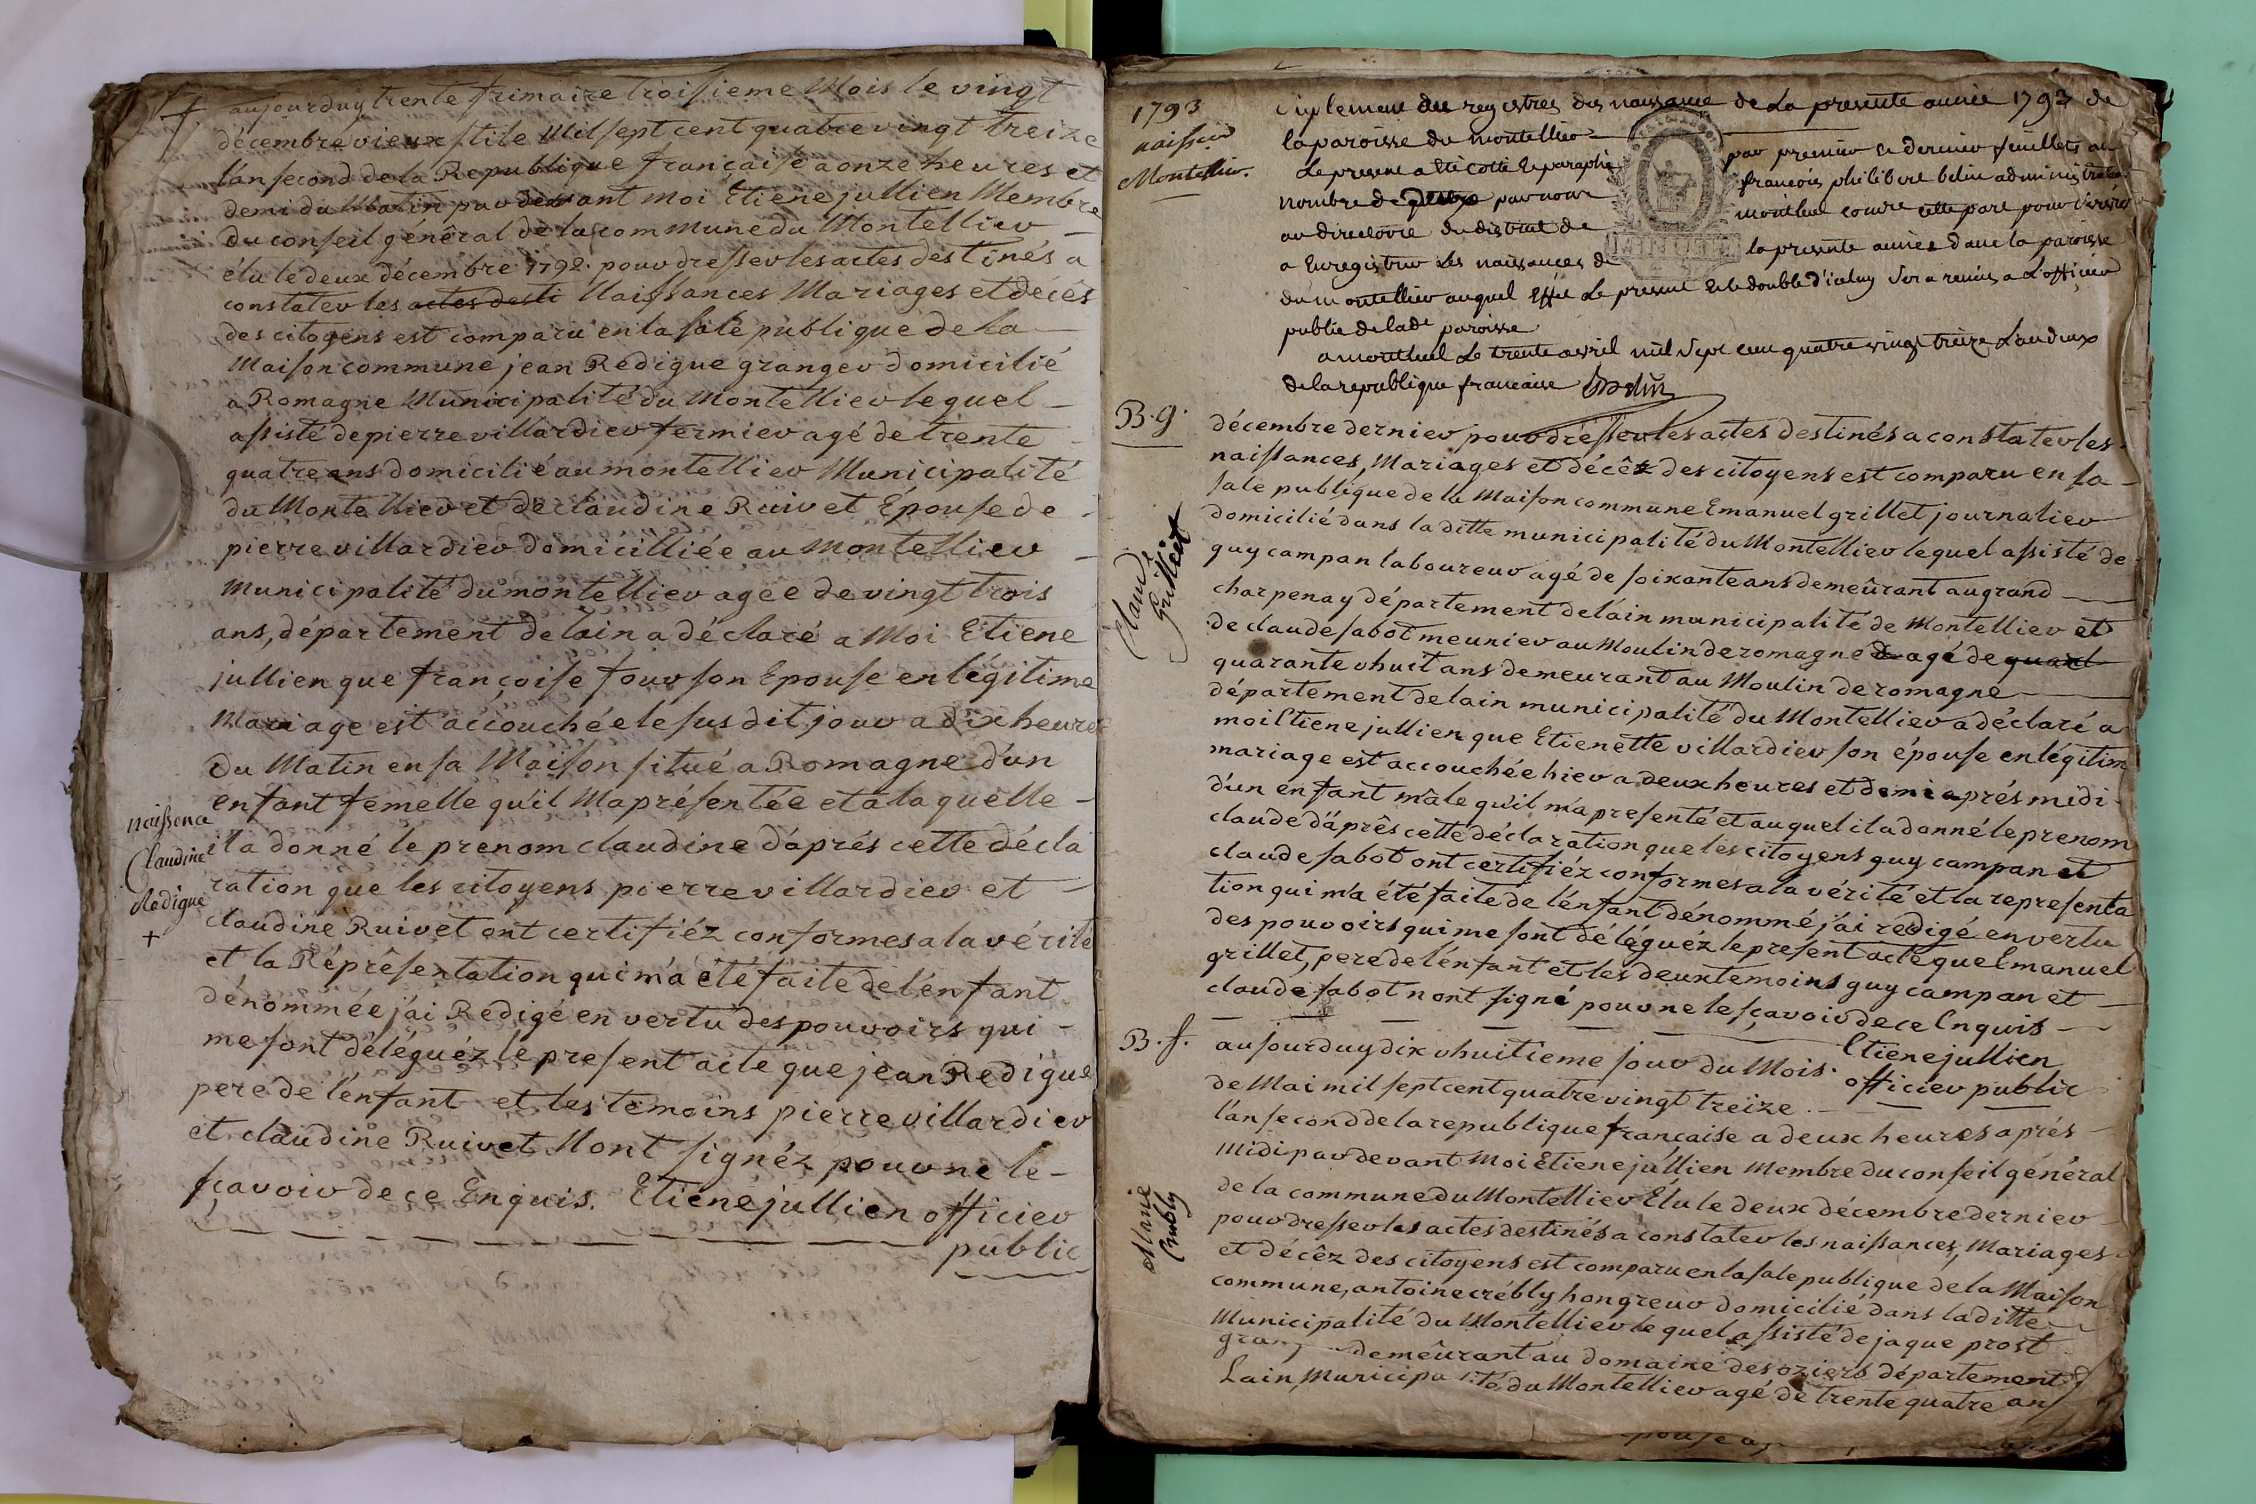 aujourduy trente frimaire troisieme Mois le vingt
décembre vieux stile Mil sept cent quatre vingt treize
l'an second de la Republique française a onze heures et
demi du Matin par devant moi Etiene jullien Membre
du conseil genéral de la commune du Montellier
élu le deux décembre 1792. pour dresser les actes destinés a
constater les actes desti Naissances Mariages et décès
des citoyens est comparu en la sale publique de la
Maison commune jean Redigue granger domicilié
a Romagne Municipalité du Montellier lequel
assisté de pierre villardier fermier agé de trente
quatre ans domicilié au montellier Municipalité
du Montellier et de claudine Ruivet Épouse de
pierre villardier domicilliée au Montellier
Municipalité du montellier agée de vingt trois
ans, département de lain a déclaré a Moi Etiene
jullien que françoise four son Epouse en légitime
Mariage est accouchée le susdit jour a dix heures
du Matin en sa Maison situé a Romagne d'un
enfant femelle qu'il Ma présentée et a laquelle
naissance
il a donné le prenom claudine d'aprés cette décla
Claudine
ration que les citoyens pierre villardier et
Redigue
+
claudine Ruivet ont certifiéz conformes a la vérité
et la Réprésentation qui m'a été faite de l'enfant
dénommée j'ai Redigé en vertu des pouvoirs qui
me sont déléguéz le present acte que jean Redigue
pere de l'enfant et les temoins pierre villardier
et claudine Ruivet Nont signéz pour ne le
sçavoir de ce Enquis. Etiene jullien officier
public
1793
naissce
Montellier.
suplement des registres des naissance de La presente année 1793 de
la paroisse du montellier
Le present a été cotté et paraphé par premier et dernier feuillets au
nombre de deux par nous françois philibert belin administrateur
au directoire du district de montluel contre cette part pour servir
a Enregistrer les naissances de la presente année dans la paroisse
du montellier auquel effet Le present et le double d'iceluy sera remis a L'officier
public de lade paroisse
a montluel Le trente avril mil sept cent quatre vingt treize L'an deux
de la republique francaise Belin
B. g.
décembre dernier pour dresser les actes destinés a constater les
naissances, Mariages et décêz des citoyens est comparu en sa
sale publique de la Maison commune Emanuel grillet journalier
domicilié dans la ditte municipalité du Montellier lequel assisté de
Claude
Grillet
guy campan laboureur agé de soixante ans demeûrant au grand
charpenay département de láin municipalité de Montellier et
de claude sabot meunier au Moulin de romagne agé de quart
quarante vhuit ans demeurant au Moulin de romagne
département de lain municipalité du Montellier a déclaré a
moi Etiene jullien que Etienette villardier son épouse en légitim
mariage est accouchée hier a deux heures et demi aprés midi
d'un enfant mâle qu'il m'a presenté et auquel il a donné le prenom
claude d'âprês cette déclaration que les citoyens guy campan et
claude sabot ont certifiéz conformes a la vérité et la representa
tion qui m'a été faite de l'énfant dénommé j'ai rédigé en vertu
des pouvoirs qui me sont déléguéz le present acte que Emanuel
grillet, pere de l'énfant et les deux temoins guy campan et
claude sabot n'ont signé pour ne le sçavoir de ce Enquis
Etiene jullien
officier public
B. f.
aujourduy dix vhuitieme jour du Mois
de Mai mil sept cent quatre vingt treize.
l'an second de la republique française a deux heures aprés
midi par devant Moi Etiene jullien Membre du conseil général
de la commune du Montellier Élu le deux décembre dernier
Marie
Crebly
pour dresser les actes destinés a constater les naissances, Mariages
et décêz des citoyens est comparu en la sale publique de la Maison
commune, antoine crébly hongreur domicilié dans la ditte
Municipalité du Montellier lequel assisté de jaque prost
demeûrant au domaine des oziers département d
Lain, Municipalité du Montellier agé de trente quatre ans